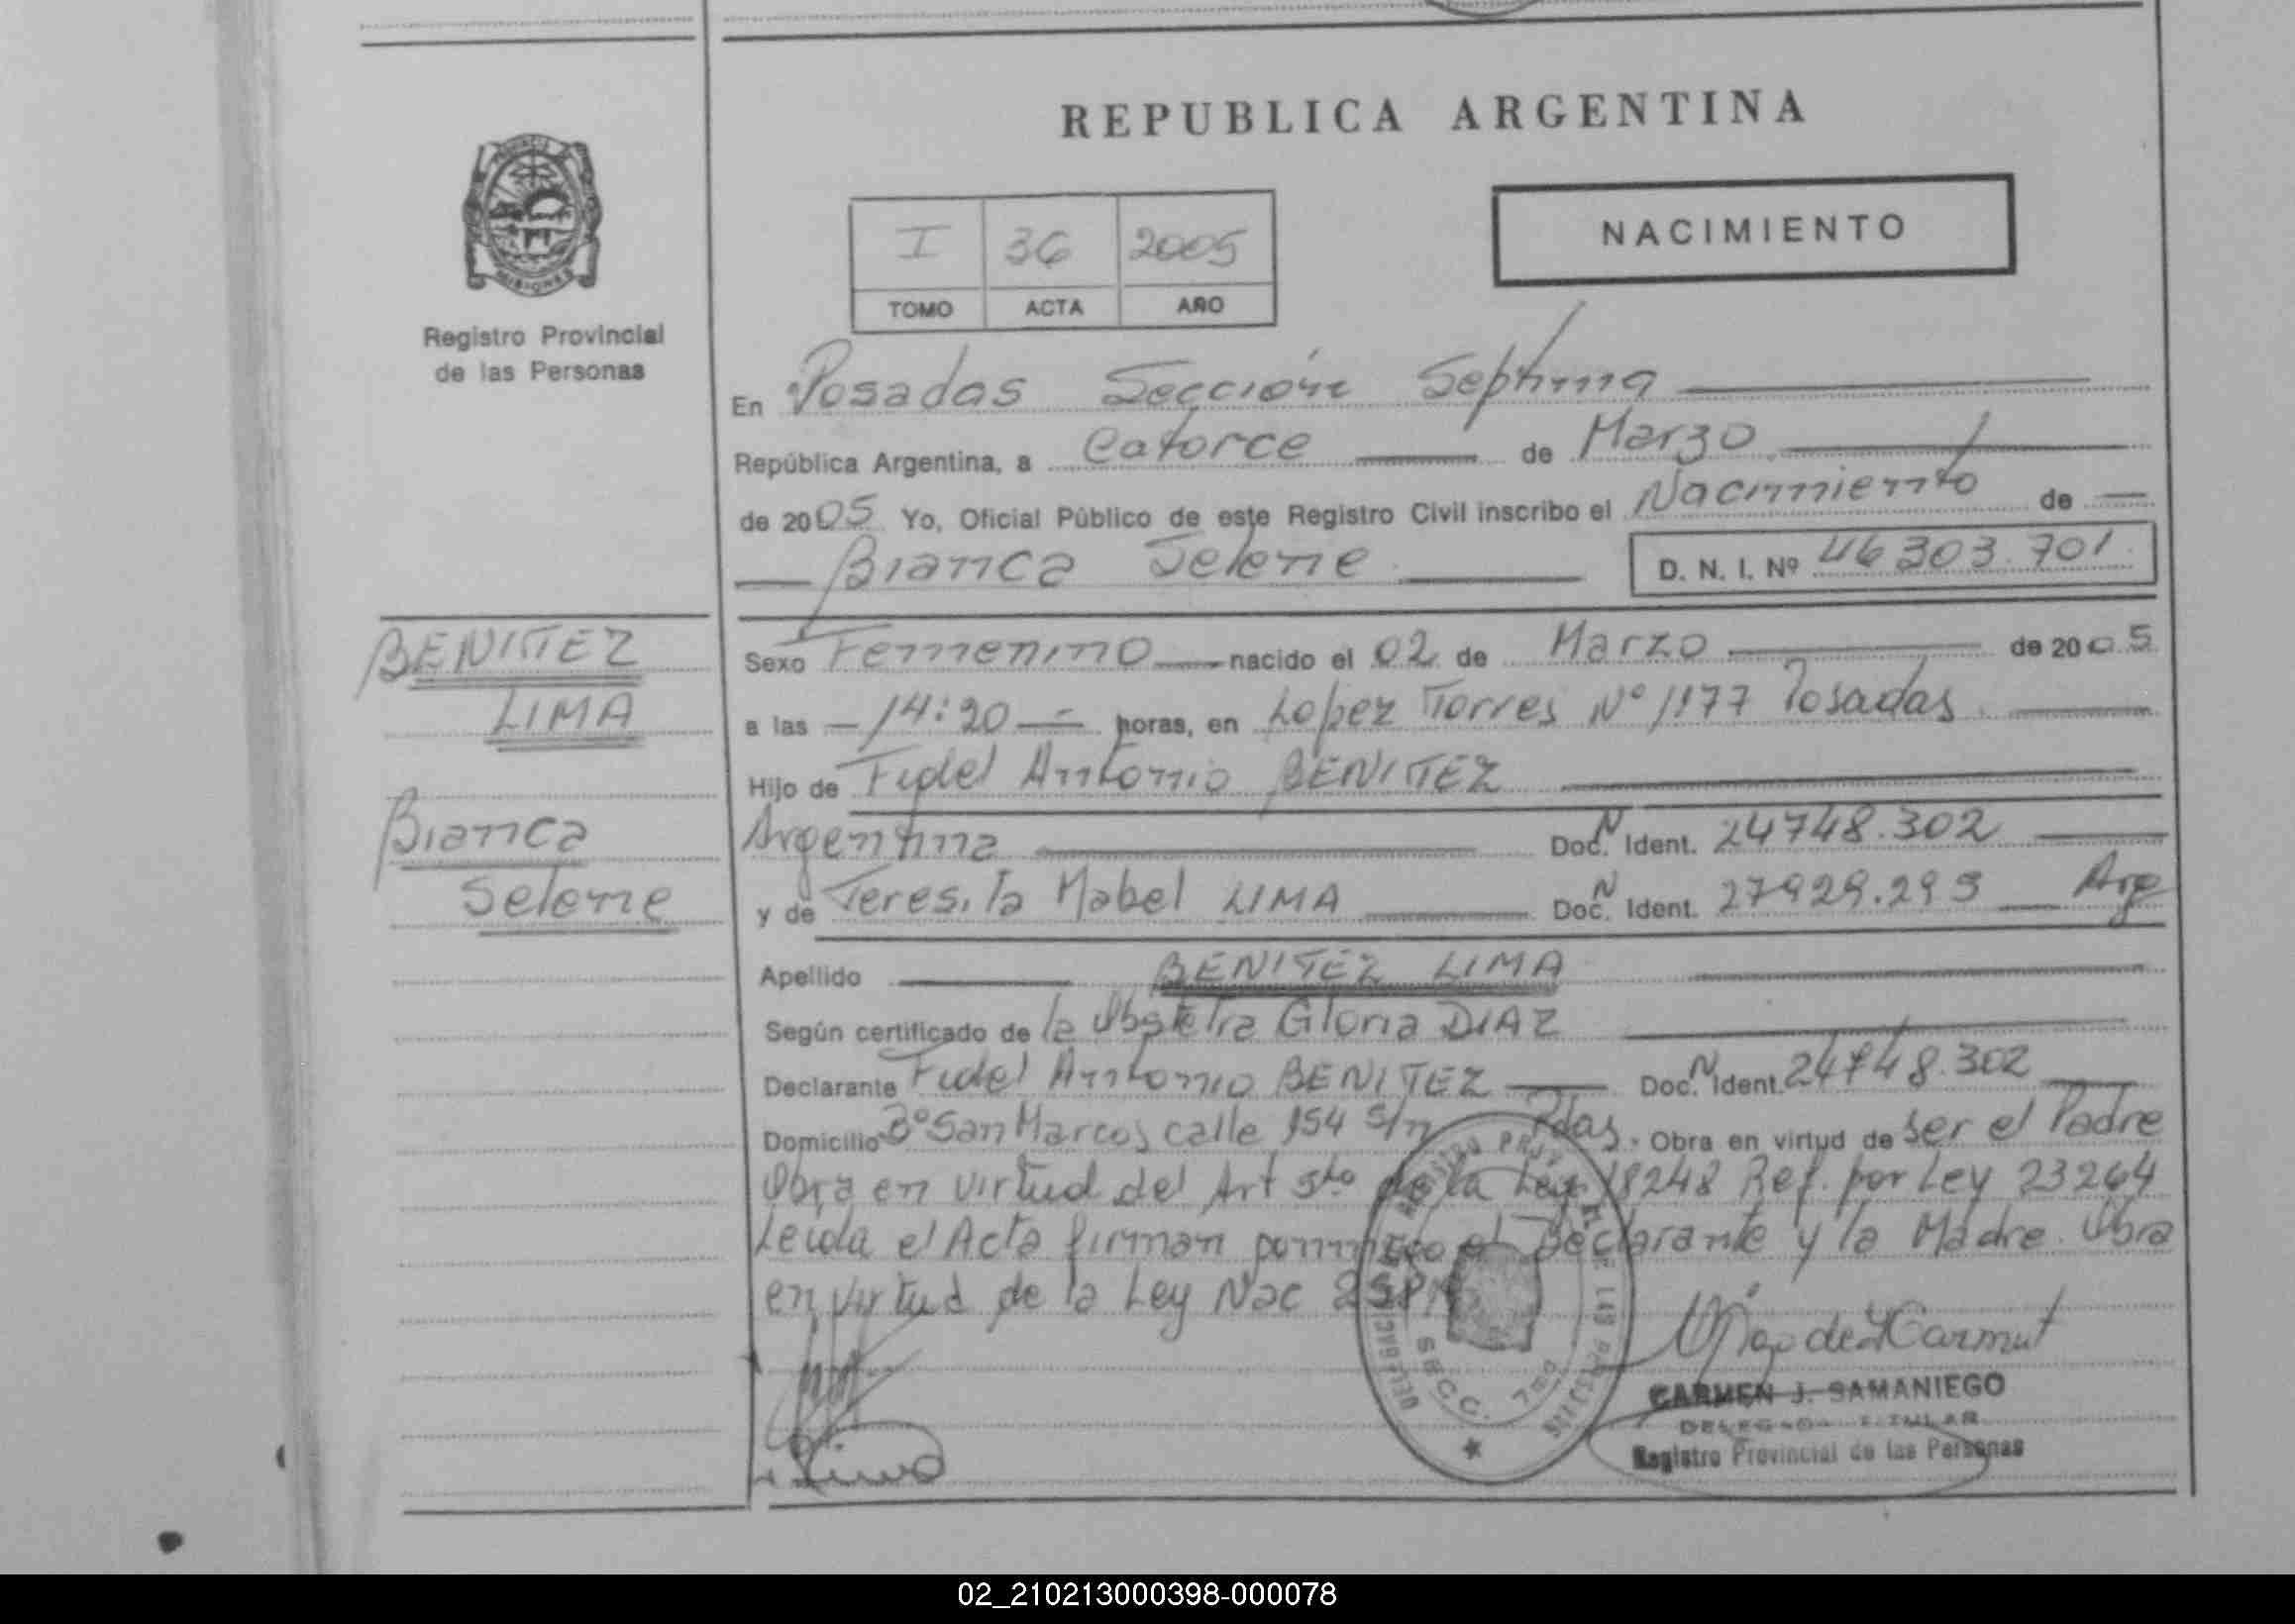 REPUBLICA ARGENTINA
NACIMIENTO
I 36 2005
TOMO ACTA AÑO
Registro Provincial
de las Personas
En Posadas Sección Septima
República Argentina, a Catorce de Marzo
de 2005 Yo, Oficial Público de este Registro Civil inscribo el Nacimiento de
Bianca Selene D. N. I. Nº 46 303.701
BENITEZ
LIMA
Bianca
Selene
Sexo Femenino nacido el 02 de Marzo de 2005
a las 14:20 horas, en Lopez Torres Nº 1177 Posadas
Hijo de Fidel Antonio BENITEZ
Argentina Doc. N Ident. 24748.302
y de Teresita Mabel LIMA Doc. N Ident. 27929.295 Arg
Apellido BENITEZ LIMA
Según certificado de la Obstetra Gloria DIAZ
Declarante Fidel Antonio BENITEZ Doc. N Ident. 24748.302
Domicilio Bº San Marcos calle 154 s/n Pdas. Obra en virtud de ser el Padre
Obra en virtud del Art 5to de la Ley 18248 Ref. por Ley 23264
Leida el Acta firman conmigo el Declarante y la Madre Obra
en virtud de la Ley Nac
SECC. 7ma
CARMEN J. SAMANIEGO
DELEGADA TITULAR
Registro Provincial de las Personas
02_210213000398-000078